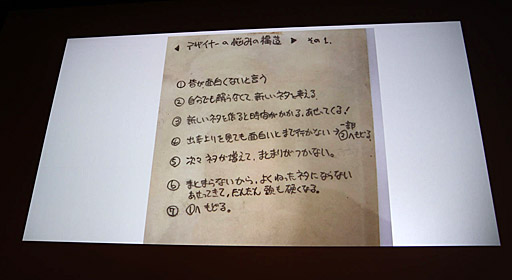 ◀ デザイナーの悩みの構造 ▶ その1.
① 皆が面白くないと言う
② 自分でも解らなくて 新しいネタを考える
③ 新しいネタを作ると時間がかかる、あせってくる!
④ 出来上りを見ても面白いとまで行かない 一部②へもどる
⑤ 次々 ネタが増えて、まとまりがつかない。
⑥ まとまらないから、よくねったネタにならない
あせってきて、だんだん 頭も硬くなる。
⑦ ①へもどる。